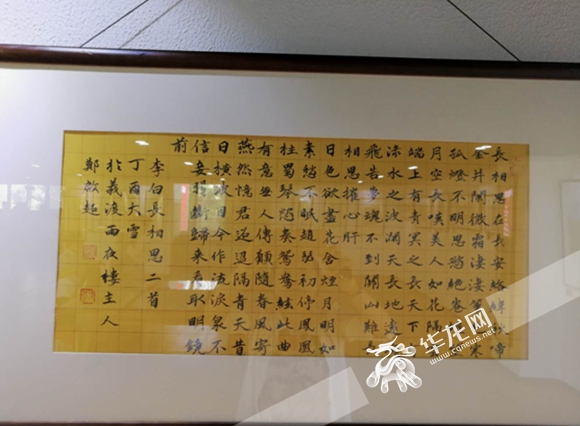 長相思在長安絡緯秋啼
金井闌微霜淒淒簟
孤燈不明思欲絕卷
月空長嘆美人如花隔
端上有青冥之長天下
淥水之波瀾天長地遠
飛苦夢魂不到關山難長
相思摧心肝
日色欲盡花含煙月明如
素愁不眠趙瑟初停鳳凰
柱蜀琴欲奏鴛鴦絃此曲
有意無人傳願隨春風寄
燕然憶君迢迢隔青天昔
日橫波目今作流淚泉不
信妾腸斷歸來看取明鏡
前
李白長相思二首
丁酉大雪
於義渡雨夜樓主人
鄭啟超
华龙网
www.cqnews.net